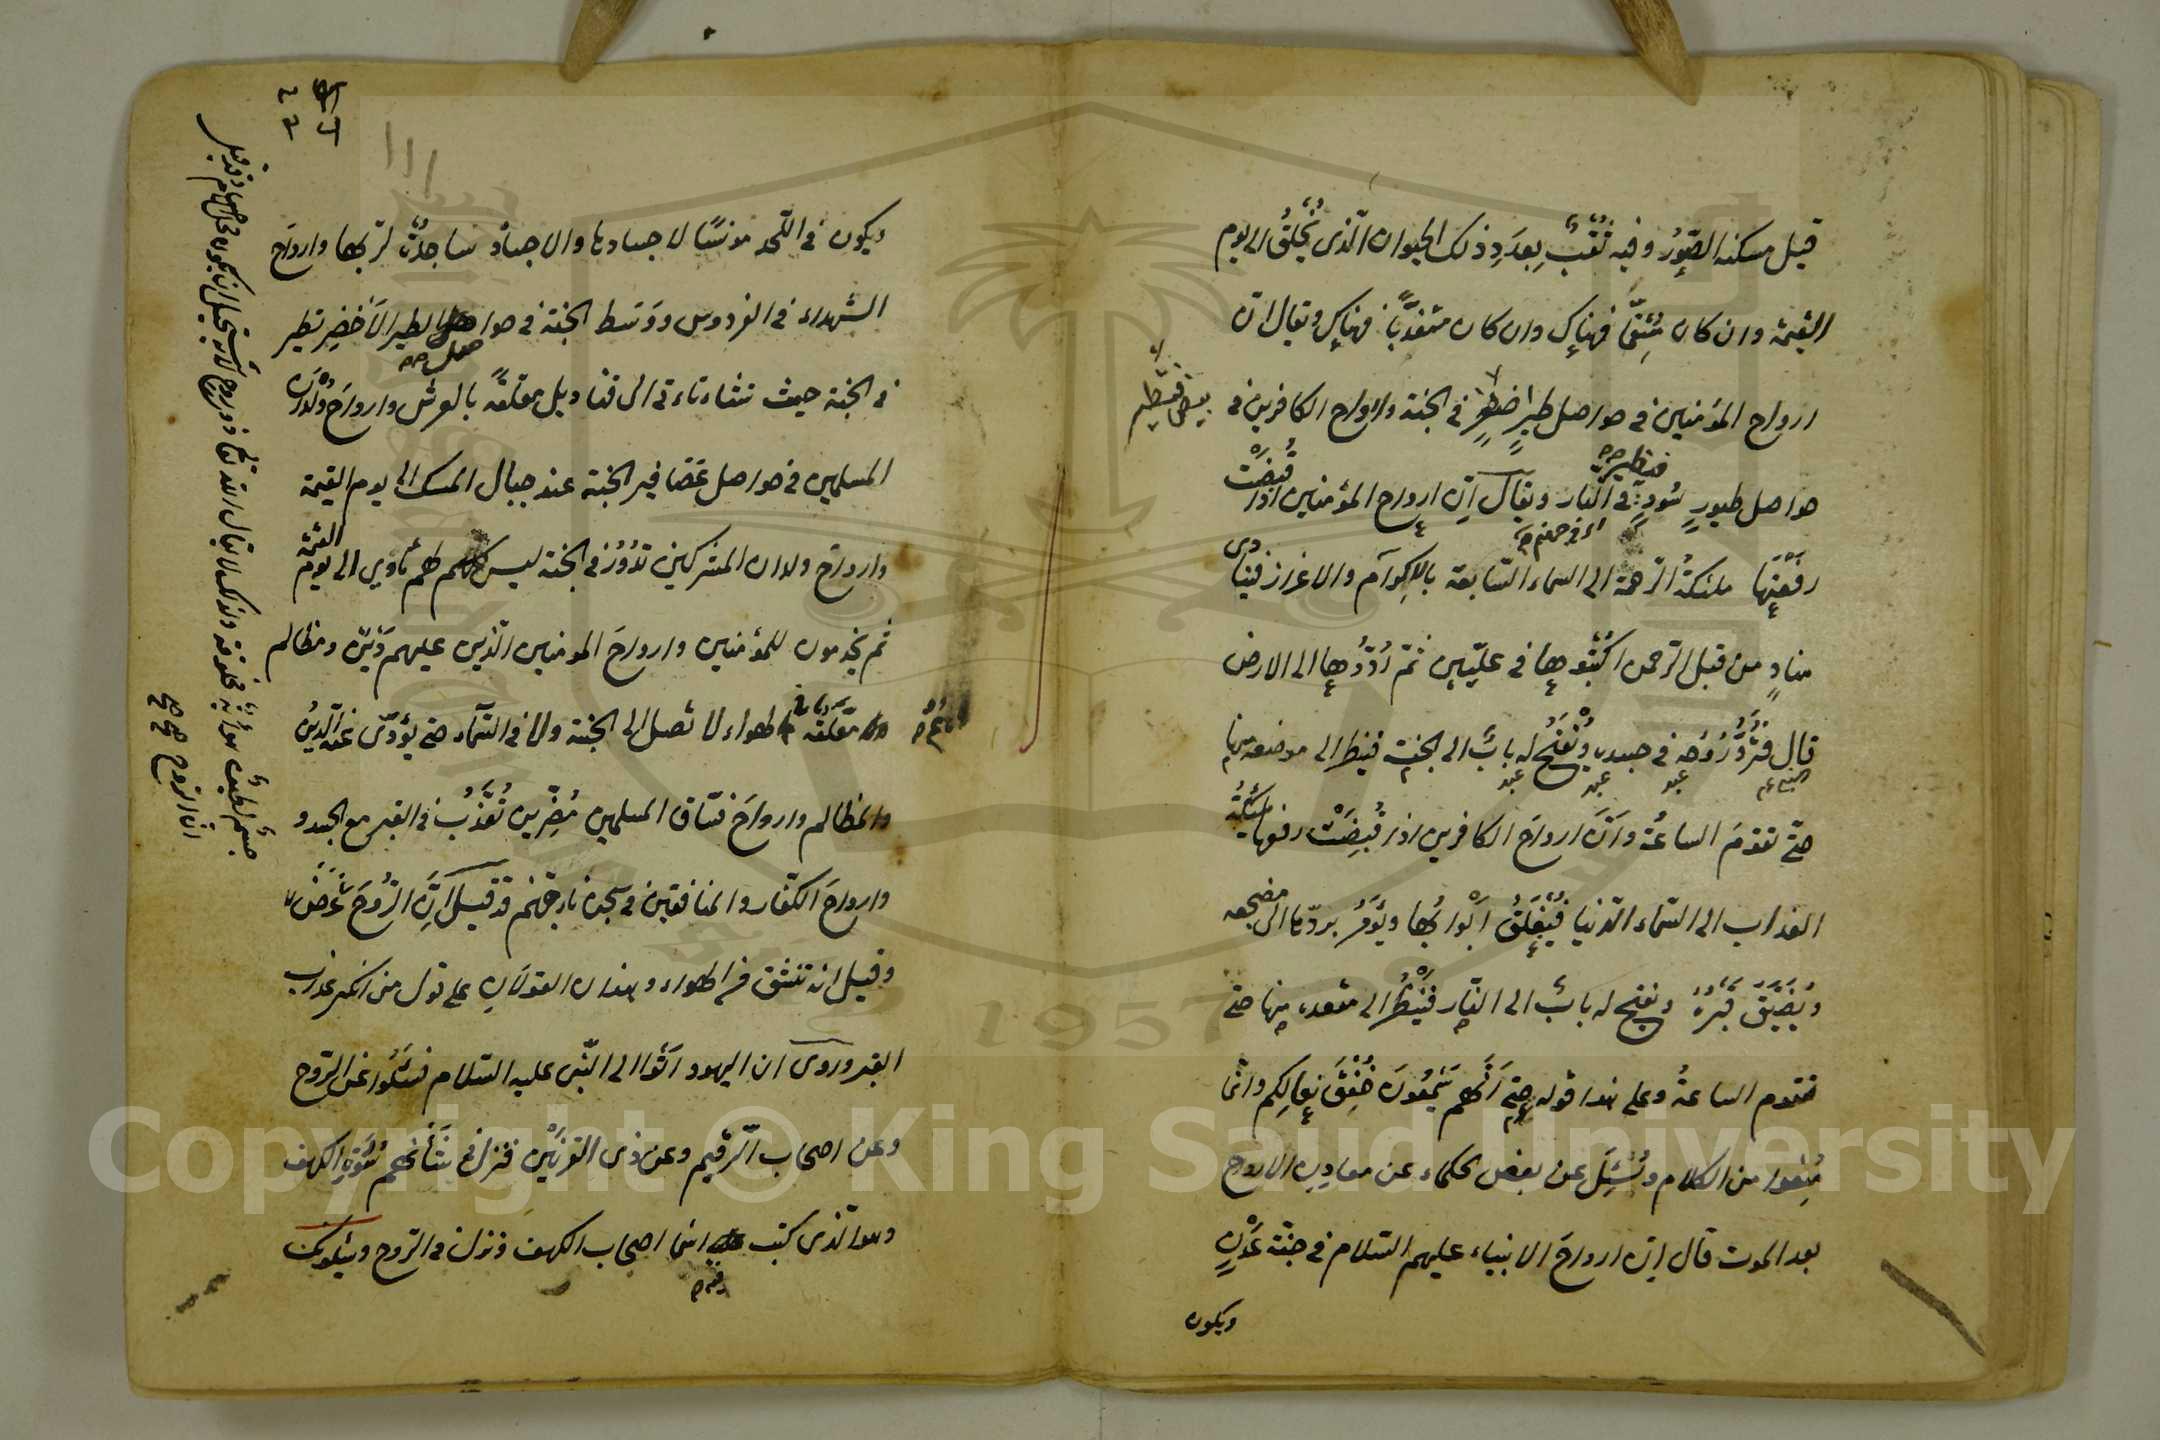 قيل مسكنه الصُّوَرُ وفيه ثُقَبٌ بِعدَدِ ذلك الحيوان الّذى يُخْلَقُ الى يوم
القيمة وان كان مُنَعَّمًا فهناك وان كان متعذّبًا فهناك ويقال انّ
ارواح المؤمنين فى حواصل طيرٍ خضرٍ فى الجنة وارواح الكافرين فى
حواصل طيورٍ سُودٍ فى النار ويقال انّ ارواح المؤمنين اذا قُبِضَتْ
رفَعَتْها ملئكةُ الرّحمة الى السماء السّابعة بالاكرام والاعزاز فينادى
منادٍ من قبل الرّحمن اكْتُبُوها فى علّيّين ثمّ رُدُّوها الى الارض
قال فتُرَدُّ رُوحُه فى جسده ويُفْتَحُ له بابٌ الى الجنة فينظر الى موضعه منها
حتّى تقوم الساعةُ وانّ ارواحَ الكافرين اذا قُبِضَتْ رفعها ملئكةُ
العذاب الى السّماء الدّنيا فيُغْلَقُ ابْوابُها ويُؤمَرُ بردّها الى مضجعه
ويُضَيَّقُ قَبْرُهُ ويفتح له بابٌ الى النّار فيَنْظُرُ الى مقعده منها حتّى
تقوم الساعةُ وعلى هذا قوله حتّى انّهم يَسْمَعُونَ خَفْقَ نِعالِكم وانّما
مُنِعُوا من الكلام وسُئِلَ عن بعض الحكماء عن معادن الارواح
بعد الموت قال انّ ارواحَ الانبياء عليهم السّلام فى جنّة عَدْنٍ
ويكون
ويكون فى اللّحد مونسًا لاجسادها والاجسادُ ساجدةٌ لربّها وارواحَ
الشهداء فى الفردوس ووَسَط الجنة فى حواصل الطير الأخضر تطير
حواصل صح
فى الجنة حيث تشاء تاءتى الى قناديل معلّقة بالعرش وارواحَ وِلْدانِ
المسلمين فى حواصل عَصَافير الجنة عند جبال المسك الى يوم القيمة
وارواحَ ولدان المشركين تَدُورُ فى الجنة ليس لهم مَأوىً الى يوم القيمة
ثم يخدمون للمؤمنين وارواحَ المومنين الّذين عليهم دَيْنٌ ومظالم
معلّقةٌ بالهواء لا تصل الى الجنة ولا فى السّماء حتى يُؤَدّى عَنْه الدَّينُ
والمظالم وارواحَ فسّاق المسلمين مُصِرّين تُعَذَّبُ فى القبر مع الجسد و
وارواحَ الكفّار والمنافقين فى سجّين نار جهنّم قد قيل انّ الرُّوحَ عَرَضٌ
وقيل انه تنشق من الهواء وهذان القولان على قول من انكر عذاب
القبر وروى ان اليهود اتَوْا الى النّبى عليه السّلام فسَئَلُوا عن الرّوح
وعن اصحاب الرّقيم وعن ذى القرنَيْن فنزل فى شَأنِهم سُورَةِ الكهف
وهو الّذى كتب فيه اسْما اصحاب الكهف ونزلت فى الرّوح ويسئلونك